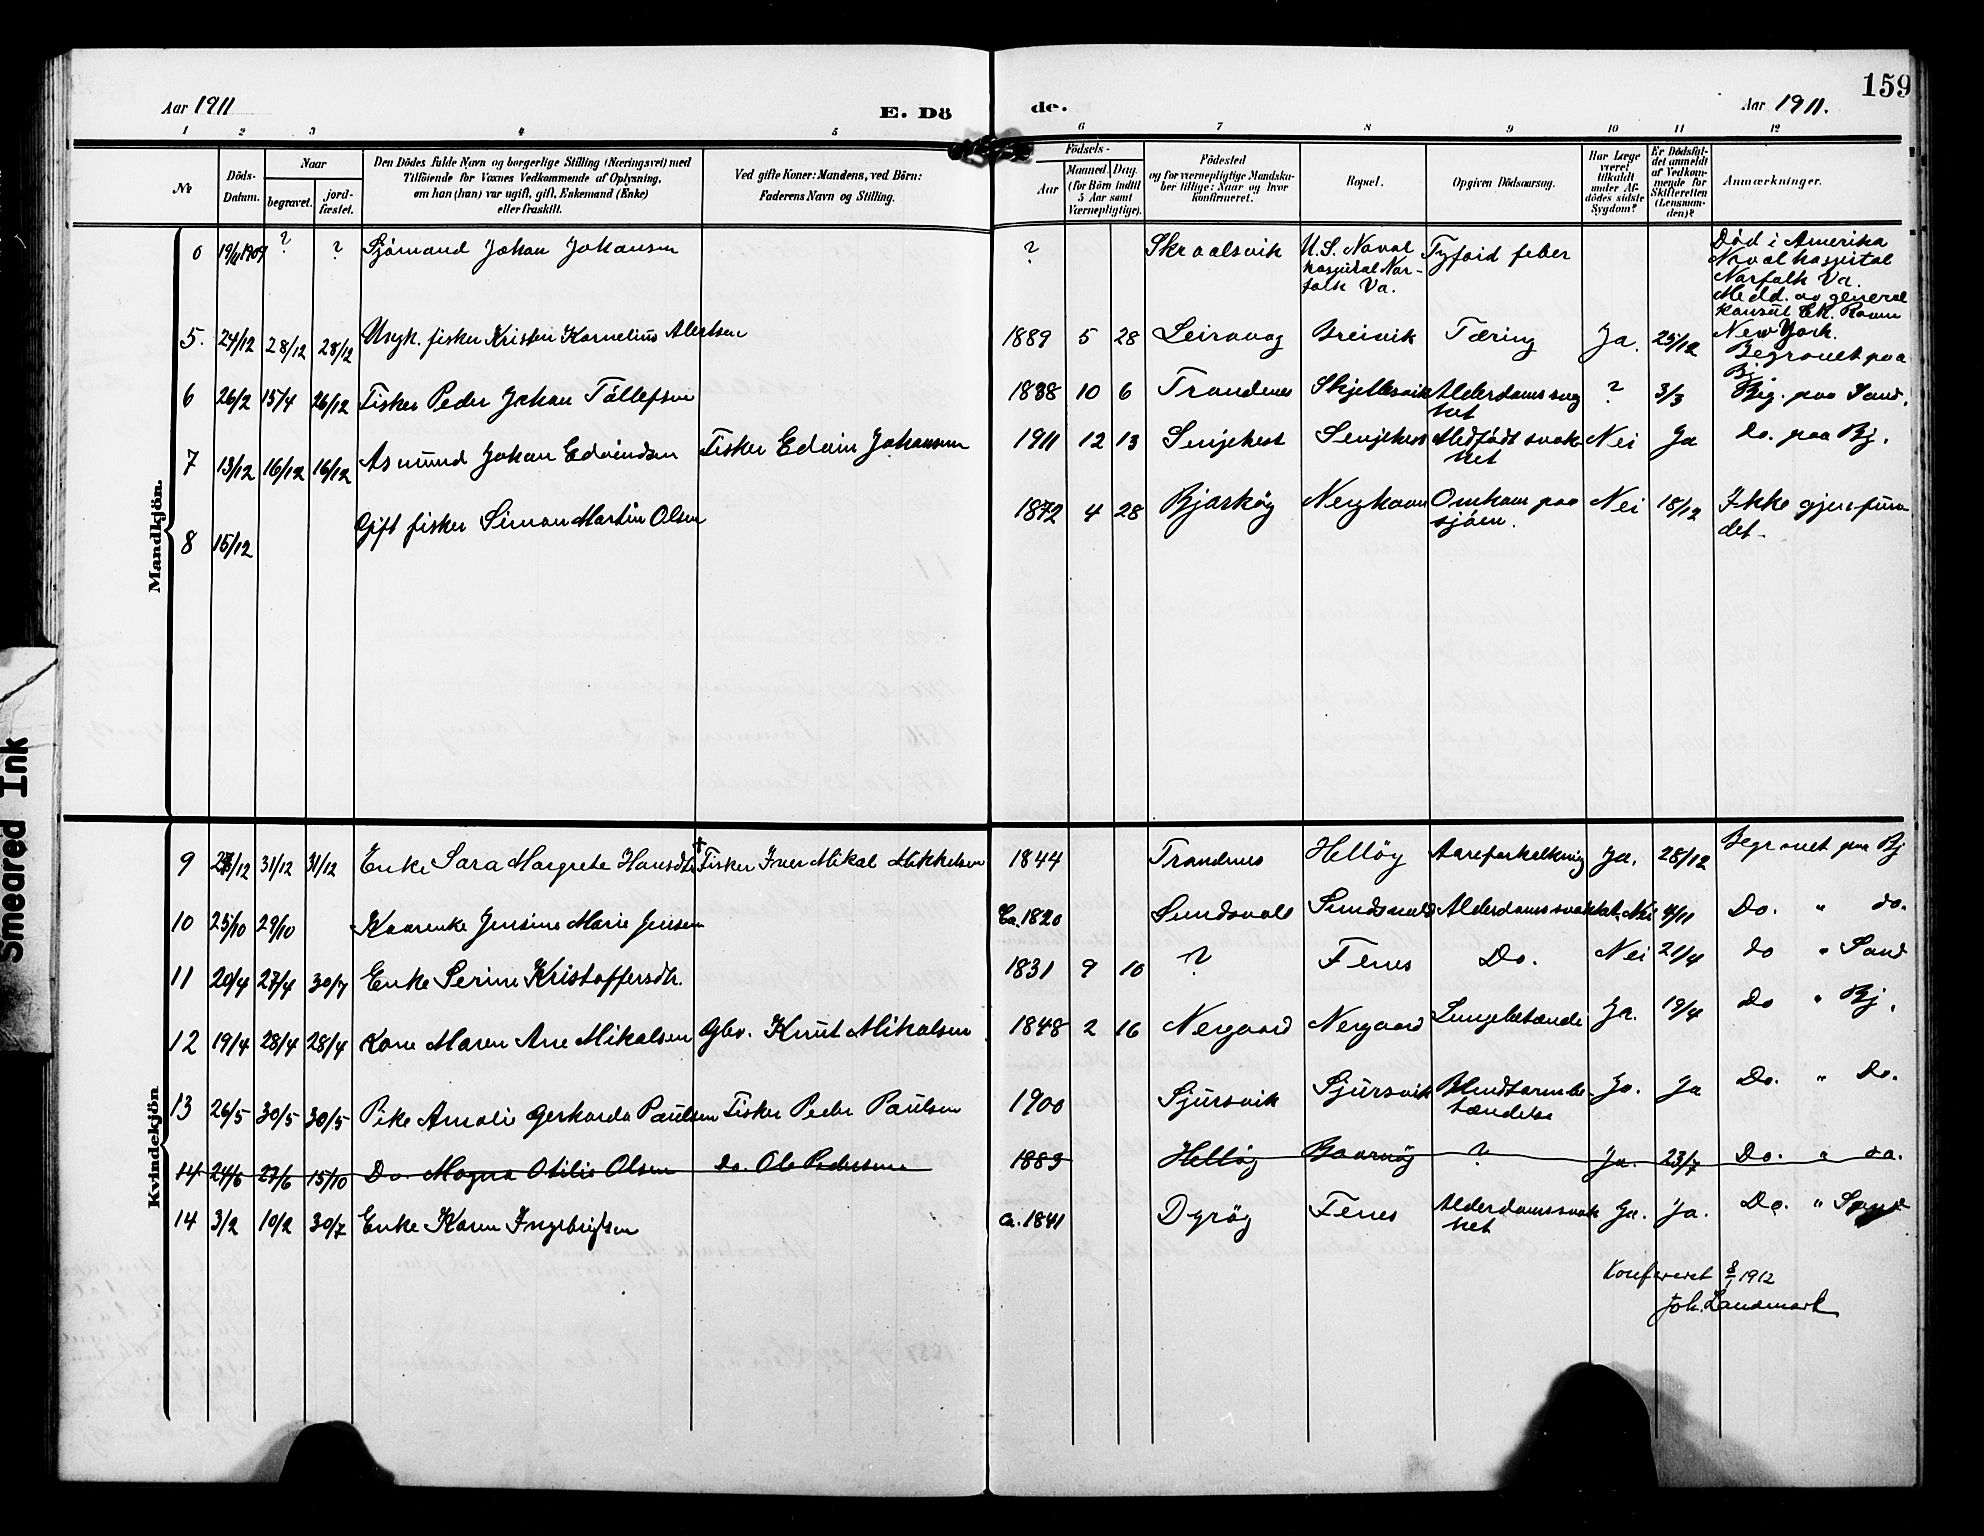 159
Aar 1911 E. Dö de. Aar 1911.
1 2 3 4 5 6 7 8 9 10 11 12
No
Döds-Datum.
Naar
begravet.
jord-fæstet.
Den Dödes fulde Navn og borgerlige Stilling (Næringsvei) med
Tilföiende for Voxnes Vedkommende af Oplysning,
om han (hun) var ugift, gift, Enkemand (Enke)
eller fraskilt.
Ved gifte Koner: Mandens, ved Börn:
Faderens Navn og Stilling.
Födsels-
Aar
Maaned. Dag.
(for Börn indtil
5 Aar samt
Værnepligtige).
Födested
og for værnepligtige Mandska-
ber tillige: Naar og hvor
konfirmeret.
Bopæl.
Opgiven Dödsaarsag.
Har Læge
været
tilkaldt
under Af-
dödes sidste
Sygdom?
Er Dödsfal-
det anmeldt
af Vedkom-
mende for
Skifteretten
(Lensman-
den)?
Anmærkninger.
Mandkjön.
0 19/6 1909 ? ? Sjømand Johan Johansen ? Skroalsvik U.S. Naval hospital Nor-folk Va. Tyfoid feber Död i Amerika
Naval hospital
Norfolk Va.
Medd. av general
konsul Ch. Ravn
New York.
5. 24/12 28/12 28/12 Ungk. fisker Kristen Kornelius Albertsen 1889 5 28 Leirvaag Breivik Tæring Ja. 25/12 Begravet paa
Bj.
6 26/2 15/4 26/12 Fisker Peder Johan Tøllefsen 1838 10 6 Trondenes Skjellesvik Alderdomssvag
het ? 3/3 Beg. paa Sand.
7 13/12 16/12 16/12 Asmund Johan Edvindsen Fisker Edvin Johansen 1911 12 13 Senjehest Senjehest Medfødt svak
het Nei Ja do. paa Bj.
8 15/12 Gift fisker Simon Martin Olsen 1872 4 28 Bjarkøy Nergaard Omkom paa
sjøen. Nei 18/12 Ikke gjenfun
det.
Kvindekjön
9 27/12 31/12 31/12 Enke Sara Margrete Hansdtr Fisker Iver Mikal Mikkelsen 1844 Trondenes Helløy Aareforkalkning Ja. 28/12 Begravet paa Bj
10 25/10 29/10 Kaarenke Jensine Marie Jensen Ca. 1820 Sundsvold Sundsvold Alderdomssvakhet Nei 4/11 Do. " do.
11 20/4 27/4 30/7 Enke Serine Kristoffersdtr. 1831 9 10 ? Fenes Do. Nei 21/4 do " Sand
12 19/4 28/4 28/4 Kone Maren Ane Mikalsen Gbr. Knut Mikalsen 1848 2 16 Nergaard Nergaard Lungebetænde Ja. 19/4 Do " Bj.
13 26/5 30/5 30/5 Pike Amalie Gerharda Paulsen Fisker Peder Paulsen 1900 Sjursvik Sjursvik Blindtarmbe-
tændelse Ja. Ja Do. " Do.
14 24/6 27/6 15/10 Do. Magna Otilie Olsen do. Ole Pedersen 1883 Helløy ? Ja. 23/7 Do. " do.
14 3/2 10/2 30/7 Enke Karen Ingebrigtsen ca. 1841 Dyrøy Fenes Alderdomssvak
het Ja. Ja. Do. " Sand
Konfereret 8/1 1912
Joh. Landmark
Smeared Ink